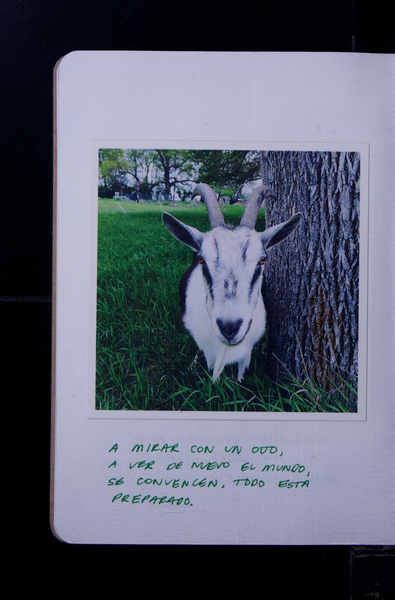 A MIRAR CON UN OJO,
A VER DE NUEVO EL MUNDO,
SE CONVENCEN, TODO ESTÁ
PREPARADO.